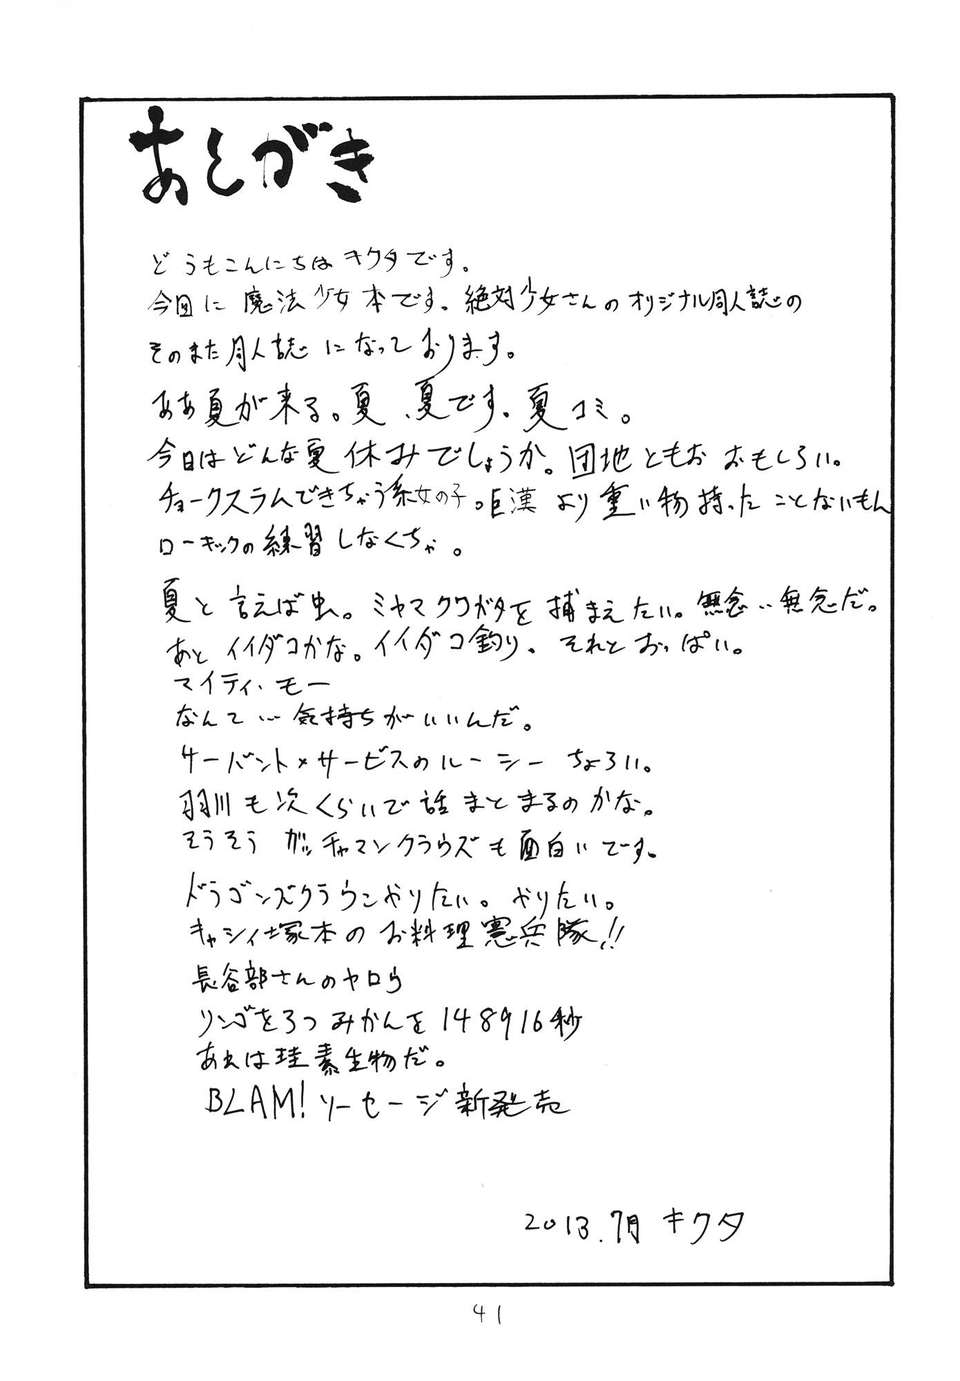 あとがき
どうもこんにちはキクタです。
今回に魔法少女本です。絶対少女さんのオリジナル同人誌の
そのまた同人誌になっております。
ああ夏が来る。夏、夏です。夏コミ。
今日はどんな夏休みでしょうか。団地ともお おもしろい。
チョークスラムできちゃう系女の子。巨漢より重い物持ったことないもん
ローキックの練習しなくちゃ。
夏と言えば虫。ミヤマクワガタを捕まえたい。無念‥無念だ。
あと イイダコかな。イイダコ釣り、それとおっぱい。
マイティ・モー
なんて…気持ちがいいんだ。
サーバント×サービスのルーシー ちょろい。
羽川も次くらいで話まとまるのかな。
そうそう ガッチャマンクラウズも面白いです。
ドラゴンズクラウンやりたい。やりたい。
キャシィ塚本のお料理憲兵隊!!
長谷部さんのヤロウ
リンゴを3つみかんを148916秒
あれは珪素生物だ。
BLAM!ソーセージ新発売
2013.7月 キクタ
41